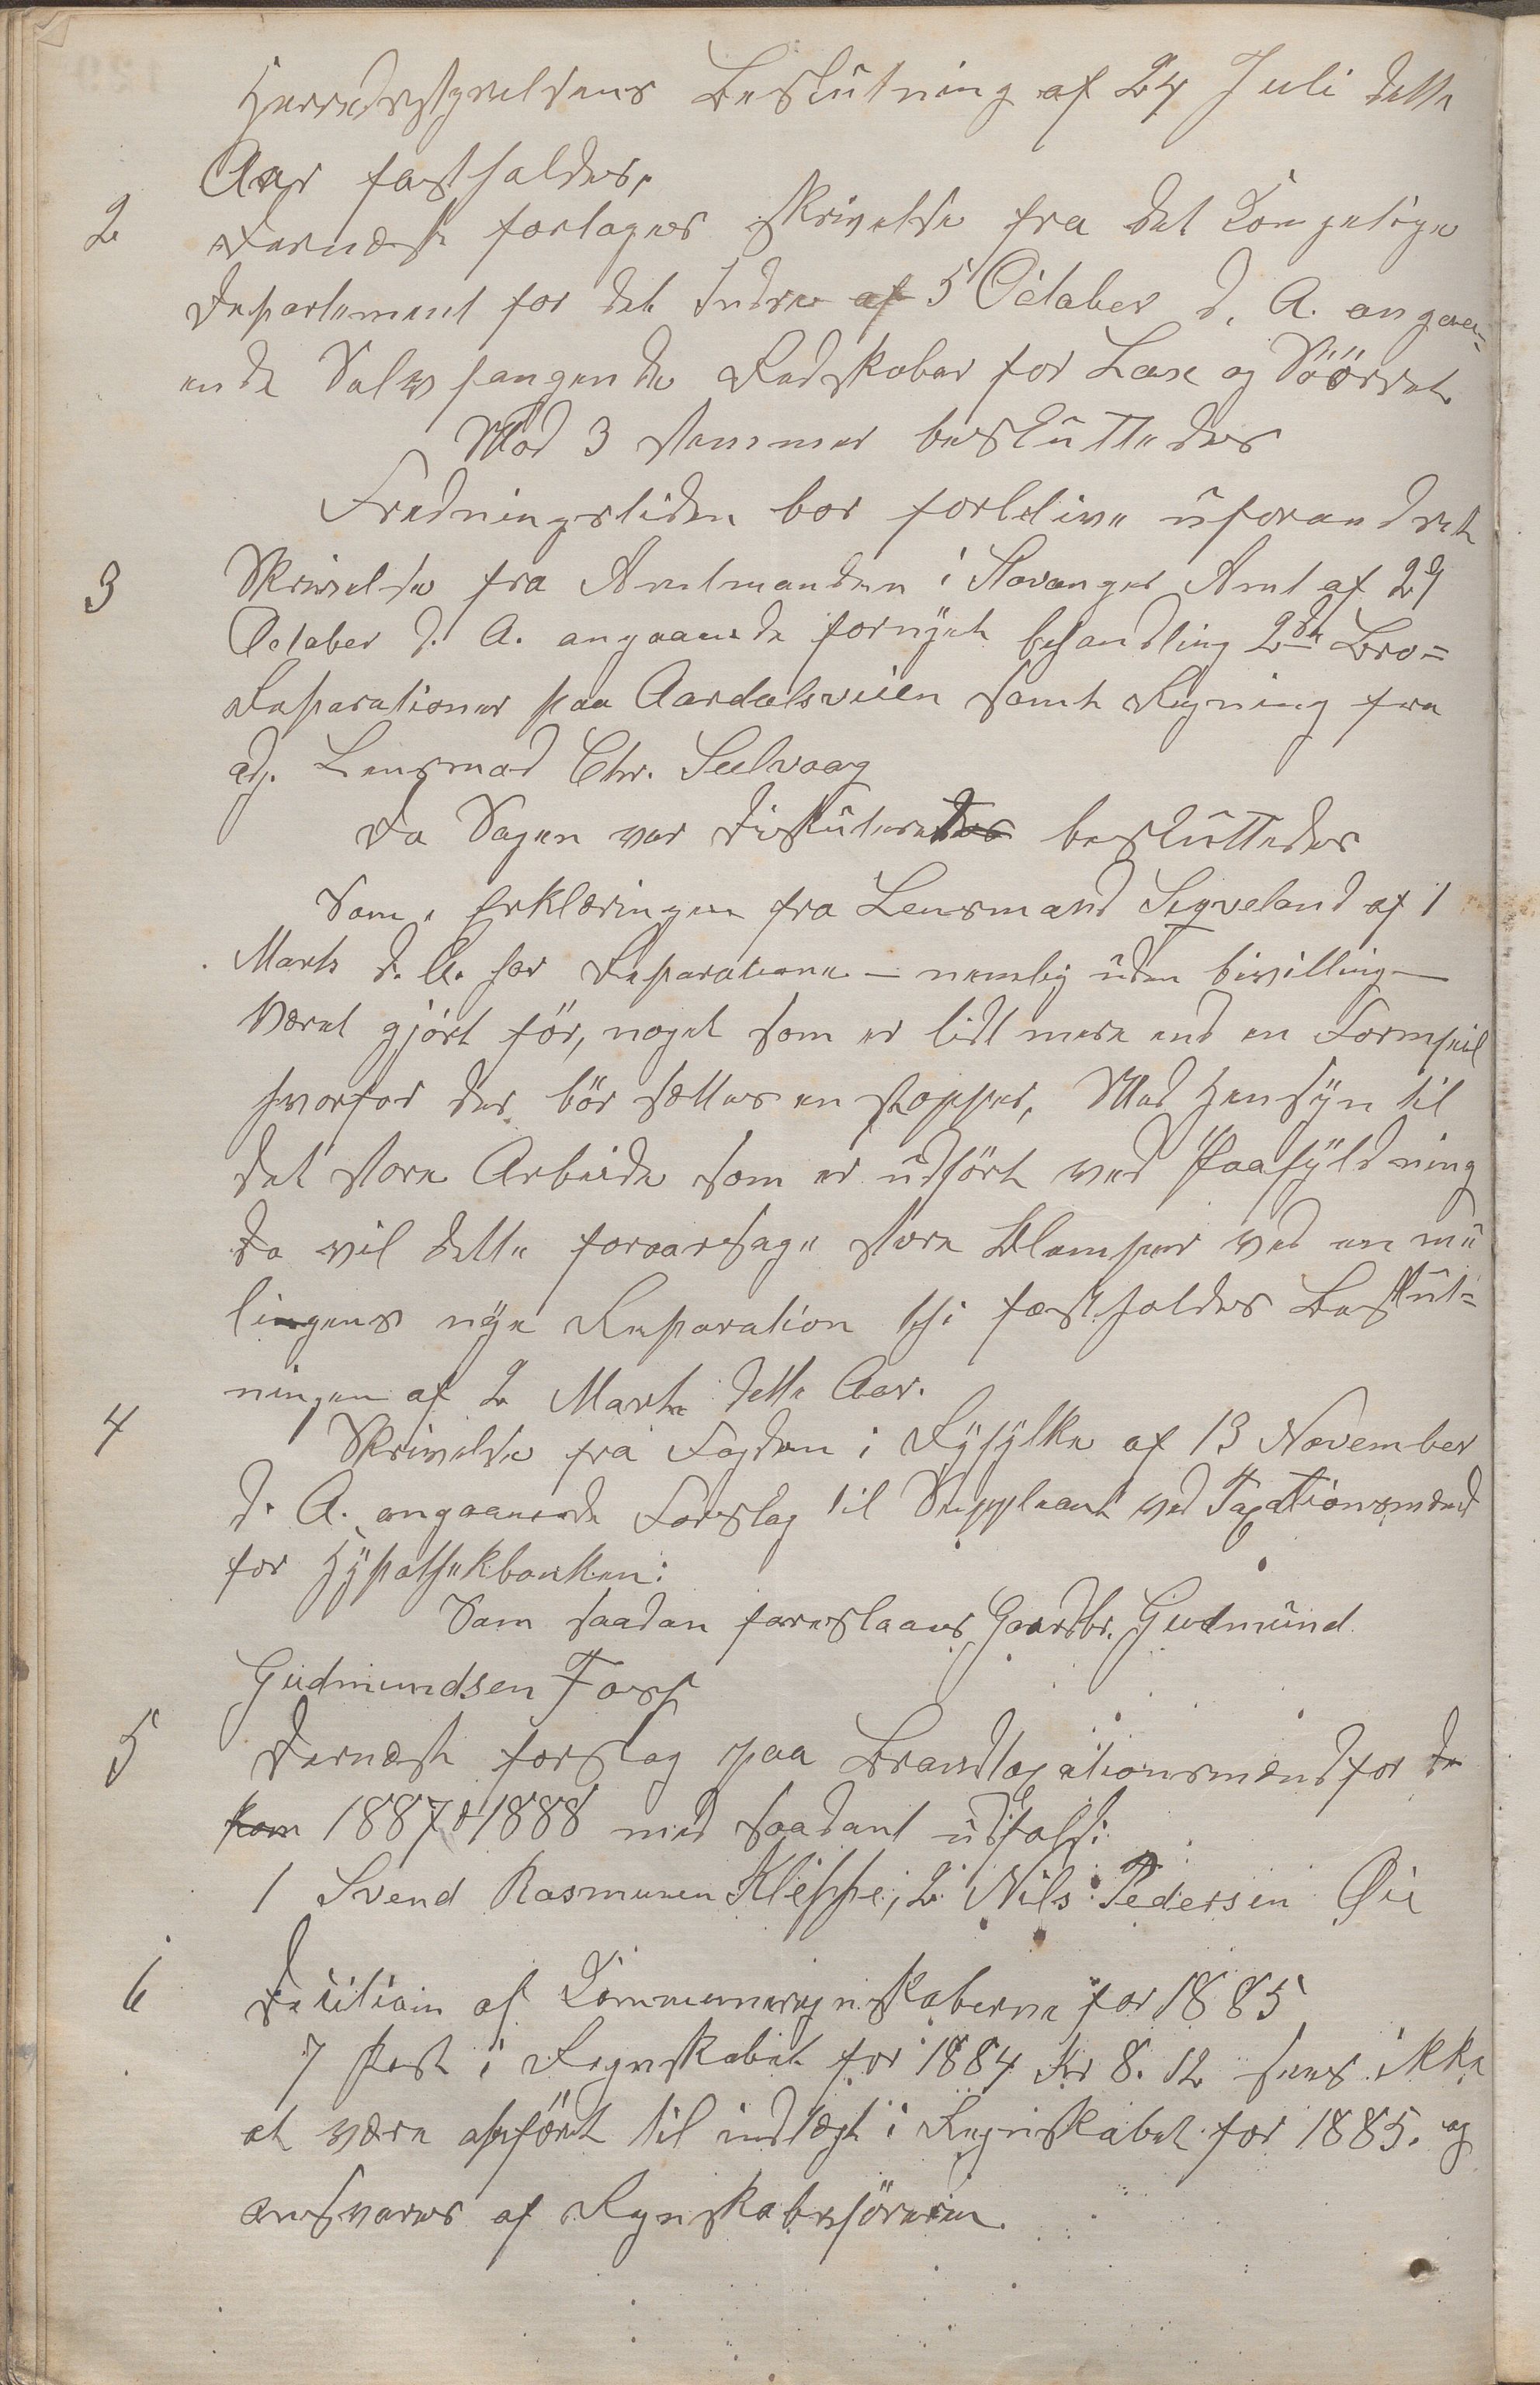 Herredsstyrelsens Beslutning af 24 Juli dette
Aar fastholdes.
2 Dernæst foretages Skrivelse fra det Kongelige
Departement for det Indre af 5 October d. A. angaa=
ende Selvfangende Redskaber for Lax og Söörret
Mod 3 Stemmer besluttedes
Fredningstiden bør forblive uforandret
3 Skrivelse fra Amtmanden i Stavanger Amt af 29
October d. A. angaaende fornyet behandling 2de Bro=
Reparationer paa Aardalsveien samt Regning fra
adj. Lensmad Chr. Sælvaag
Da Sagen var diskuteredes besluttedes
Som i Erklæringen fra Lensmand Sigveland af 1
Marts d. A. har Reparatione – nemlig uden bivilling –
været gjört för, noget som er lidt mere end en Formfeil
hvorfor der bör sættes en stopper, Med Hensyn til
det store Arbeide som er udfört ved Paafyldning
da vil dette foraarsage store Ulemper ved en mu
ligens nye Reparation thi fastholdes Beslut=
ningen af 2 Marts dette Aar.
4 Skrivelse fra Fogden i Ryfylke af 13 November
d. A. angaaende Forslag til Suppleant ved Taxationsmænd
for Hypothekbanken:
Som saadan foreslaaes Gaardbr. Gudmund
Gudmundsen Foss
5 Dernæst forslag paa Brandtaxationsmænd for de
kom 1887 & 1888 med saadant udfald:
1 Svend Rasmusen Kleppe, 2 Nils Pedersen Øie
6 Decition af Kommuneregnskaberne for 1885
7 Post i Regnskabet for 1884 Kr 8. 12 sees ikke
at være opfört til indtægt i Regnskabet for 1885. og
ansvares af Regnskabsföreren.